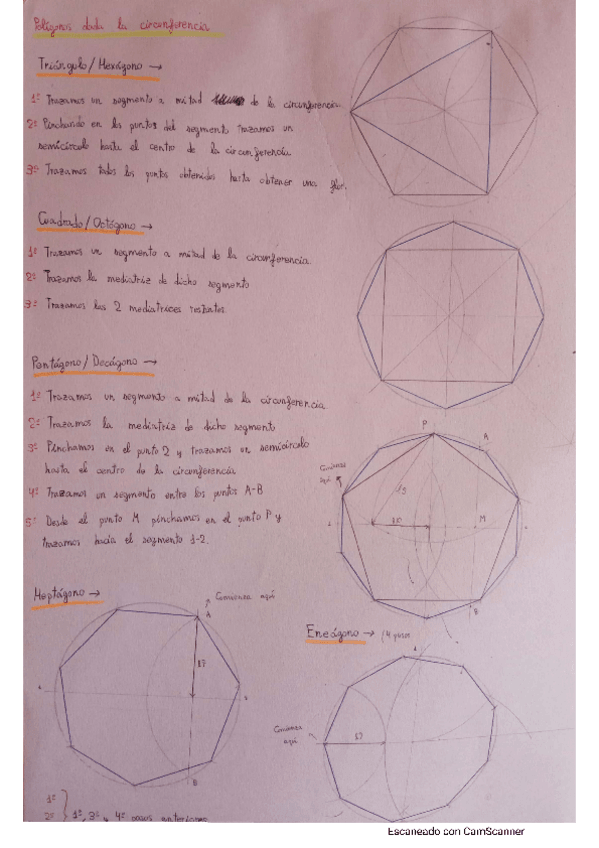 Polígonos dada la circunferencia
Triángulo/Hexágono →
1º Trazamos un segmento a mitad de la circunferencia.
2º Pinchando en los puntos del segmento trazamos un
semicírculo hasta el centro de la circunferencia
3º Trazamos todos los puntos obtenidos hasta obtener una flor.
Cuadrado/Octógono →
1º Trazamos un segmento a mitad de la circunferencia.
2º Trazamos la mediatriz de dicho segmento
3º Trazamos las 2 mediatrices restantes
Pentágono/Decágono →
1º Trazamos un segmento a mitad de la circunferencia.
2º Trazamos la mediatriz de dicho segmento
3º Pinchamos en el punto 2 y trazamos un semicírculo
hasta el centro de la circunferencia
4º Trazamos un segmento entre los puntos A-B
5º Desde el punto M pinchamos en el punto P y
trazamos hacia el segmento 1-2.
P
A
Comienza
aquí
M
B
Heptágono →
Comienza aquí
A
B
Eneágono →
Comienza
aquí
1º
2º } 1º, 3º y 4º pasos anteriores
Escaneado con CamScanner